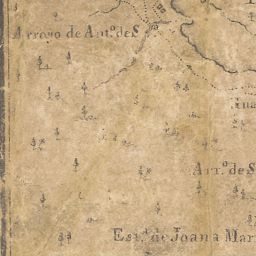 Arroyo de Ant.º de S
Arr.º de S
Est.ª de Joana Mar